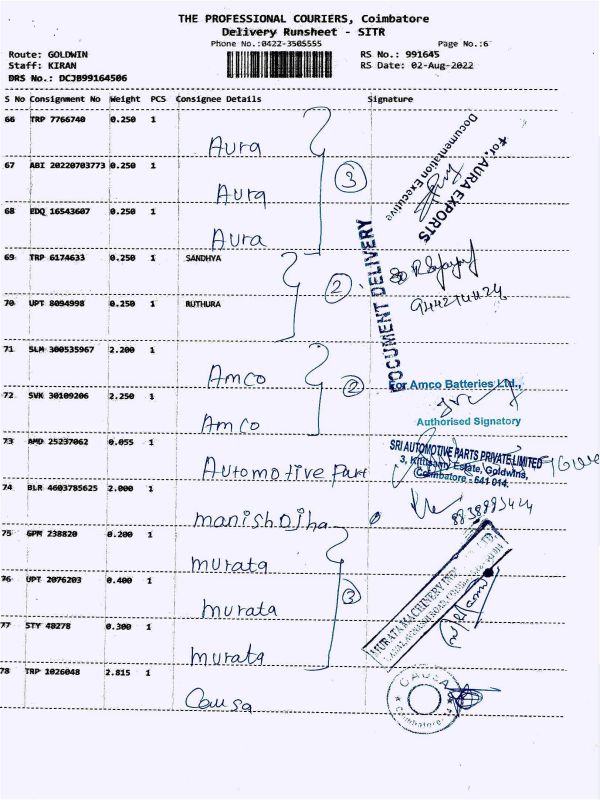 THE PROFESSIONAL COURIERS, Coimbatore
Delivery Runsheet - SITR
Phone No.:0422-3505555 Page No.:6
Route: GOLDWIN RS No.: 991645
Staff: KIRAN RS Date: 02-Aug-2022
DRS No.: DCJB99164506
S No Consignment No Weight PCS Consignee Details Signature
66 TRP 7766740 0.250 1
Aura
67 ABI 20220703773 0.250 1
Aura
68 EDQ 16543607 0.250 1
Aura
3
For, AURA EXPORTS
Documentation Executive
DOCUMENT DELIVERY
69 TRP 6174633 0.250 1 SANDHYA
70 UPT 8094998 0.250 1 RUTHURA
2
71 SLM 300535967 2.200 1
Amco
72 SVK 30109206 2.250 1
Amco
2
For Amco Batteries Ltd.,
Authorised Signatory
73 AMD 25237062 0.055 1
Automotive Part
SRI AUTOMOTIVE PARTS PRIVATE LIMITED
3, Kittusamy Estate, Goldwins,
Coimbatore - 641 014.
74 BLR 4603785625 2.000 1
manish Ojha
75 GPM 238820 0.200 1
murata
76 UPT 2076203 0.400 1
murata
77 STY 40278 0.300 1
murata
3
MURATA MACHINERY
78 TRP 1026048 2.815 1
Causa
CAUSA
Coimbatore